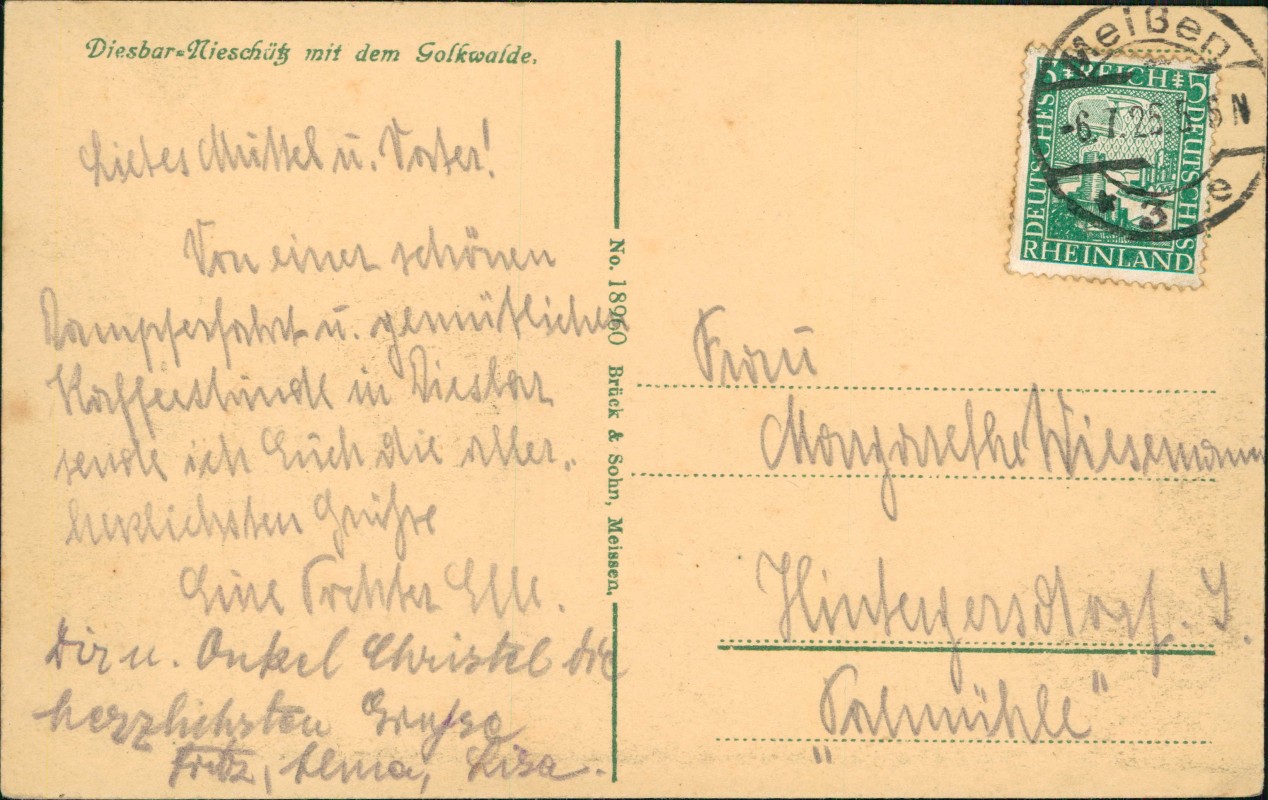 Diesbar=Nieschütz mit dem Golkwalde.
Liebes Muttel u. Vater!
Von einer schönen
Dampferfahrt u. gemütlichen
Kaffeestunde in Diesbar
sende ich Euch die aller-
herzlichsten Grüße
Eure Tochter Elle.
Dir u. Onkel Christel die
herzlichsten Grüsse
Fritz, Lisa.
No. 18960 Brück & Sohn, Meissen,
Meißen
-6.1.26.5-6N
* 3 e
5 REICH 5
DEUTSCHES
DEUTSCHES
RHEINLAND
Frau
Margarethe Wiesemann
Hintergersdorf. S.
"Talmühle"